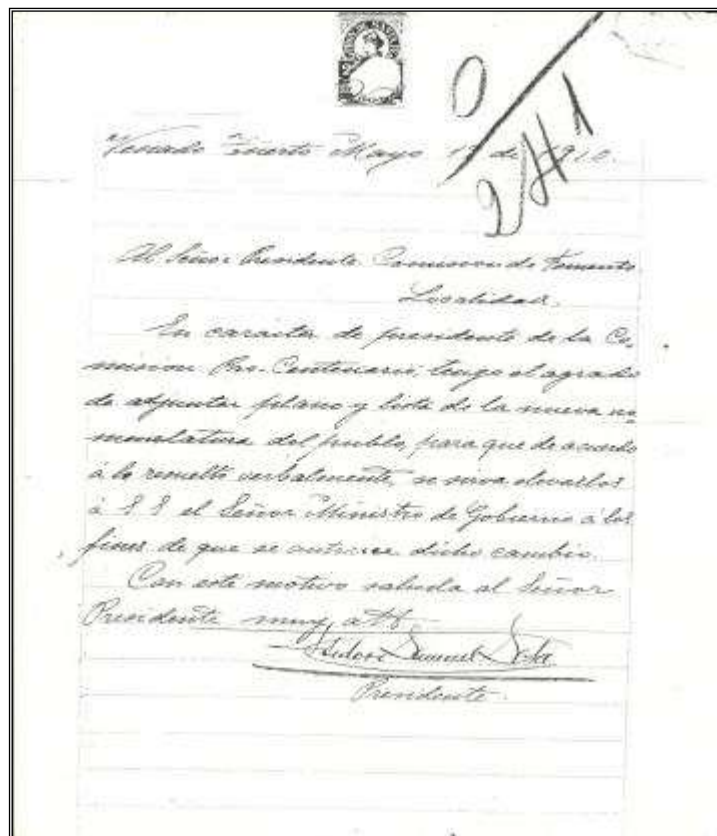 241
Venado Tuerto Mayo 19 de 1910.
Al Señor Presidente Comision de Fomento
Localidad.
En caracter de presidente de la Co-
mision Pro-Centenario, tengo el agrado
de adjuntar plano y lista de la nueva no-
menclatura del pueblo, para que de acuerdo
á lo resuelto verbalmente, se sirva elevarlos
á S S el Señor Ministro de Gobierno á los
fines de que se autorice dicho cambio.
Con este motivo saluda al Señor
Presidente muy att
Samuel
Presidente.